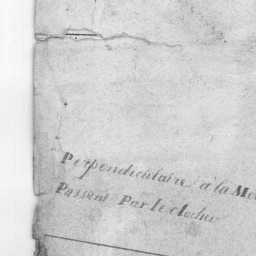 Perpendiculaire à la Me
Passant Par le clocher